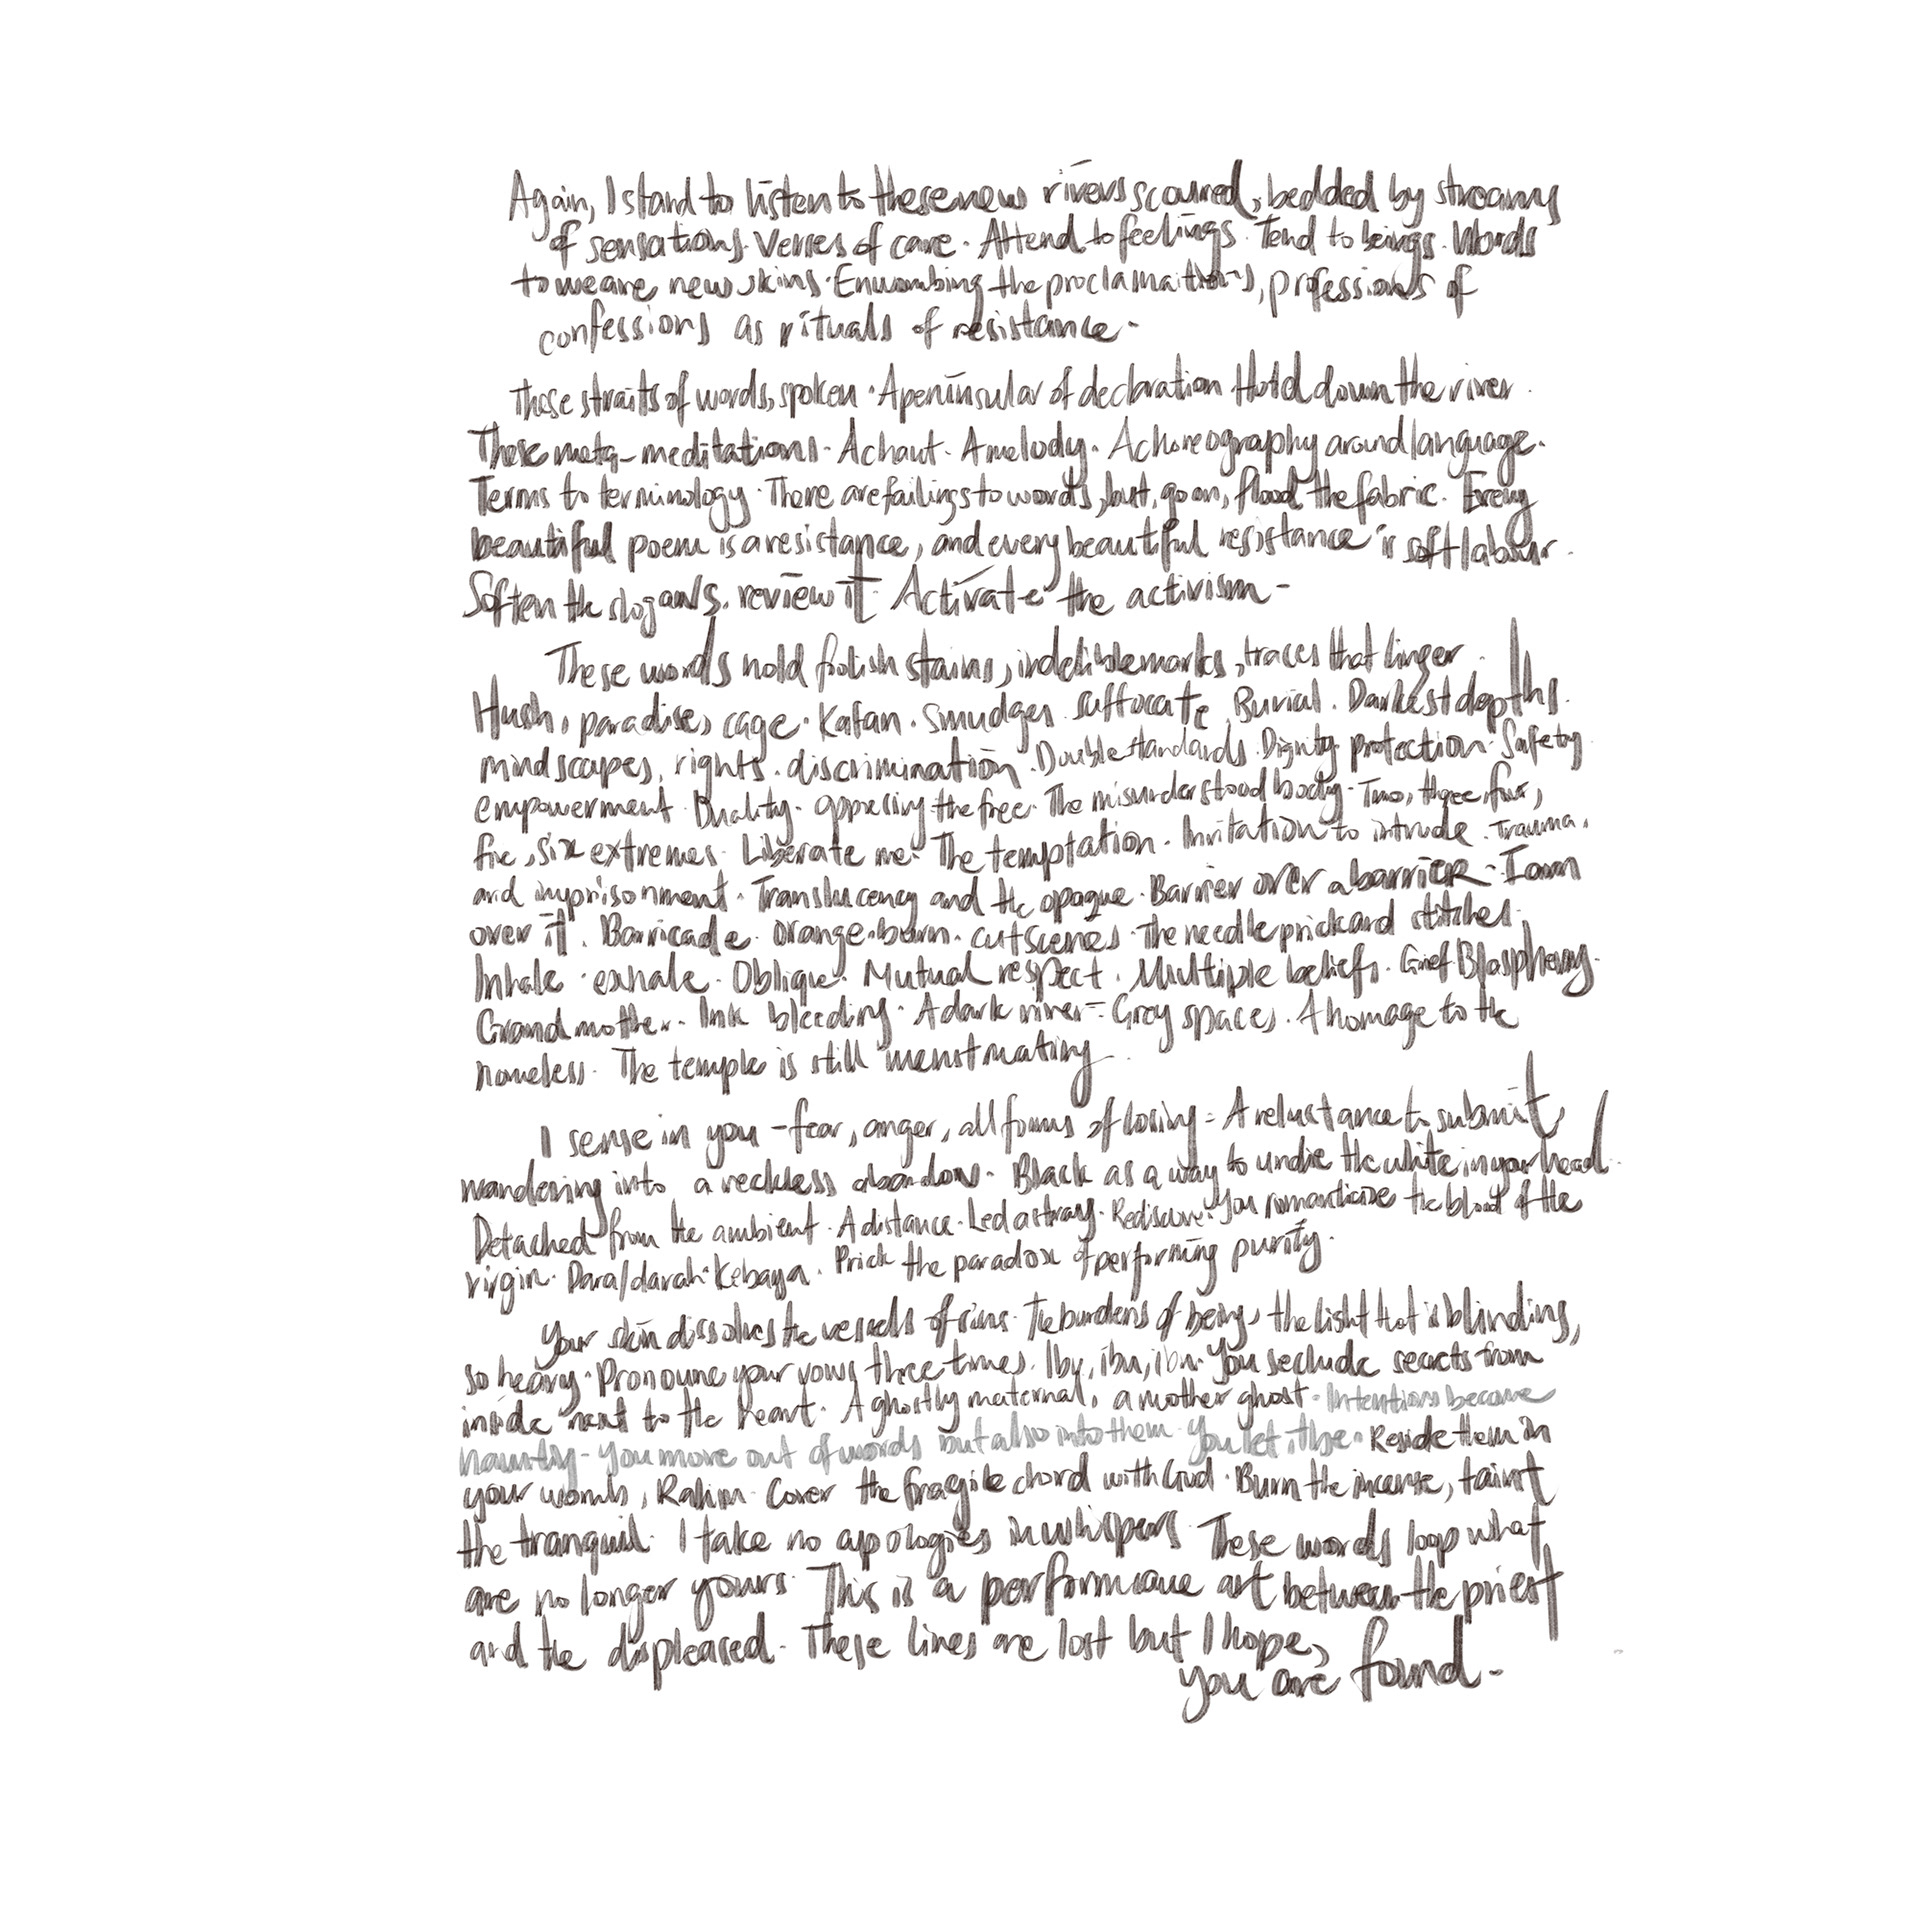 Again, I stand to listen to these new rivers scoured, bedded by streams
of sensations. Verses of care. Attend to feelings. Tend to beings. Words
to weare new skins. Enwombing the proclamaitons, professions of
confessions as rituals of resistance-
These straits of words, spoken. A peninsular of declaration. Hold down the river.
These meta-meditations. A chant. A melody. A choreography around language.
Terms to terminology. There are failings to words, but, go on, flood the fabric. Every
beautiful poem is a resistance, and every beautiful resistance is soft labour.
Soften the slogans. review it. Activate the activism-
These words hold foolish stains, indelible marks, traces that linger.
Hush, paradise, cage. Kafan. Smudges suffocate. Burial. Darkest depths.
mindscapes, rights. discrimination. Double standards. Dignity. protection. Safety
empowerment. Duality. oppressing the free. The misunderstood body. Two, three, four,
five, six extremes. Liberate me. The temptation. Invitation to intrude. Trauma.
and imprisonment. Translucency and the opaque. Barrier over a barrier. I am
over it. Barricade. orange burn. cut scenes. The needle prick and stitches.
Inhale. exhale. Oblique. Mutual respect. Multiple beliefs. Grief Blasphemy.
Grandmother. Ink bleeding. A dark river- Grey spaces. A homage to the
nameless. The temple is still menstruating.
I sense in you - fear, anger, all forms of losing- A reluctance to submit,
wandering into a reckless abandon. Black as a way to undie the white in your head.
Detached from the ambient. A distance. Led astray. Rediscover. You romanticize the blood of the
virgin. Dara/darah. Kebaya. Prick the paradox of performing purity.
Your skin dissolves the vessels of sins. The burdens of being, the light that is blinding,
so heavy. Pronounce your vows three times. Ibu, ibu, ibu. You seclude secrets from
inside next to the heart. A ghostly maternal, a mother ghost. Intentions become
haunting- You move out of words but also into them. You let, the. Reside them in
your womb, Rahim. Cover the fragile chord with God. Burn the incense, taint
the tranquil. I take no apologies in whispers. These words loop what
are no longer yours. This is a performance art between the priest
and the displeased. These lines are lost but I hope,
you are found-